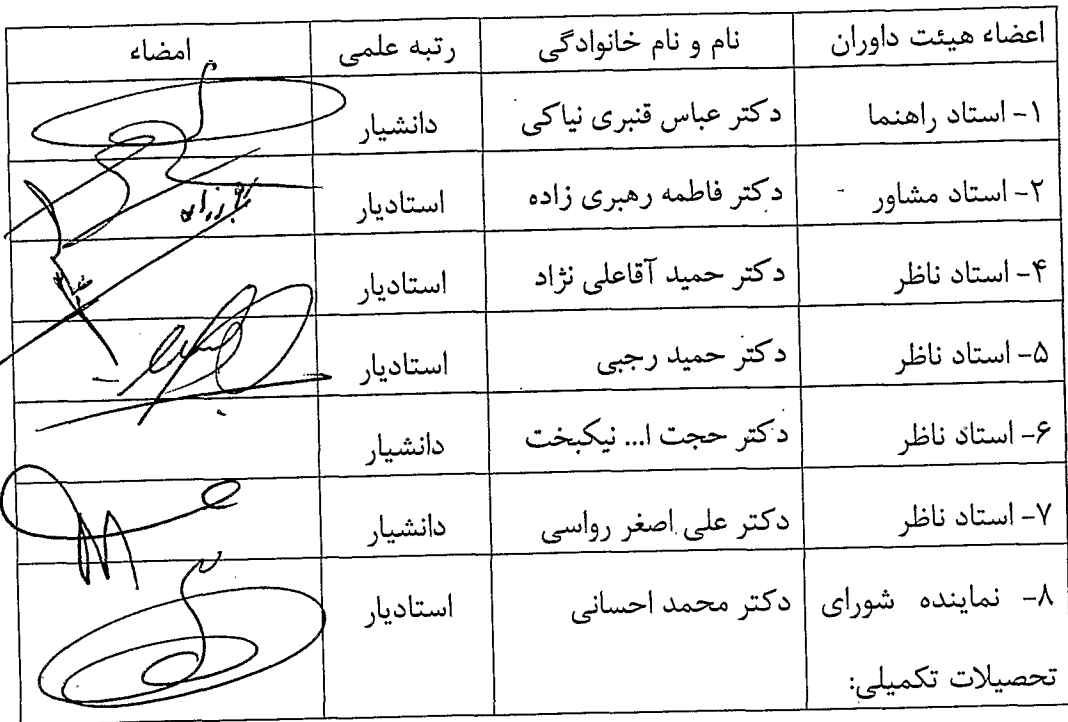 اعضاء هیئت داوران نام و نام خانوادگی رتبه علمی امضاء
۱- استاد راهنما دکتر عباس قنبری نیاکی دانشیار
۲- استاد مشاور دکتر فاطمه رهبری زاده استادیار
۴- استاد ناظر دکتر حمید آقاعلی نژاد استادیار
۵- استاد ناظر دکتر حمید رجبی استادیار
۶- استاد ناظر دکتر حجت ا... نیکبخت دانشیار
۷- استاد ناظر دکتر علی اصغر رواسی دانشیار
۸- نماینده شورای دکتر محمد احسانی استادیار
تحصیلات تکمیلی: